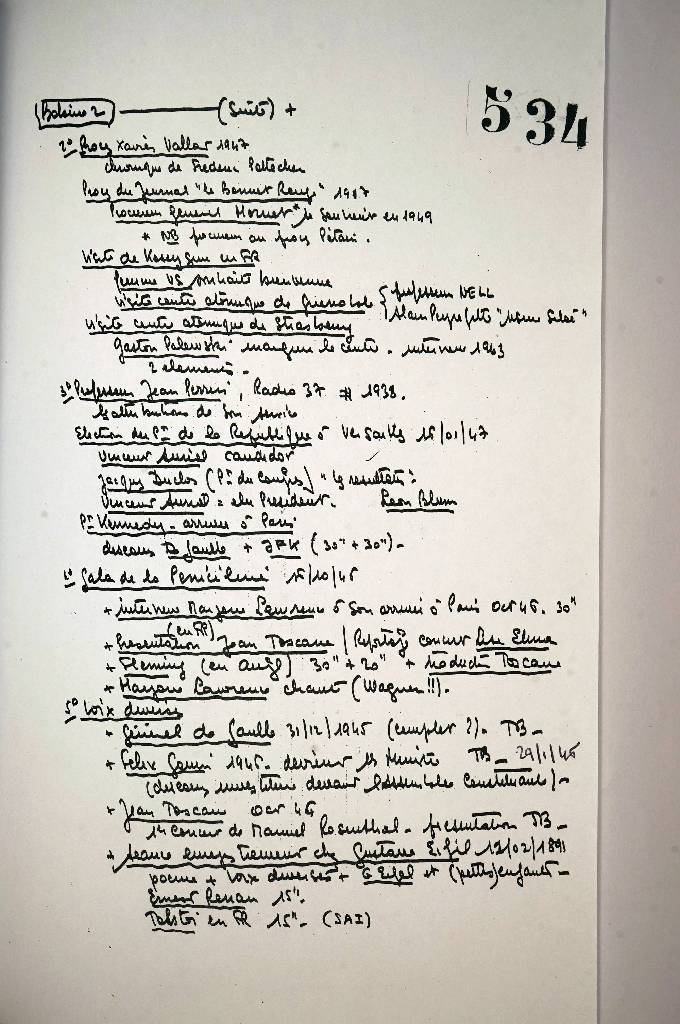 534
Bobine 2 (Suite) +
2° Procès Xavier Vallat 1947
chronique de Frederic Pottecher
Procès du Journal "Le Bonnet Rouge" 1917
Procureur General Mornet * se souvient en 1949
* NB procureur au procès Pétain.
Visite de Kossyguine en FR
femme US souhaite bienvenue
Visite centre atomique de Grenoble { professeur NEEL
Alain Peyrefitte
Visite centre atomique de Strasbourg
Gaston Palewski inaugure le centre - interview 1963
2 elements -
3° Professeur Jean Perrin, Radio 37 # 1938.
les attributions de son service
Election du Pt de la Republique à Versailles 16/01/47
Vincent Auriol candidat
Jacques Duclos (Pt du Congrès) "les resultats:
Vincent Auriol = elu President. Leon Blum
Pt Kennedy - arrivée à Paris
discours De Gaulle + JFK (30" + 30") -
Gala de la Penicilline 15/10/45
+ interview Marjorie Lawrence à son arrivée à Paris Oct 45. 30"
(en FR)
+ Presentation Jean Toscane / Reportage concert Lise Elina
+ Fleming (en angl) 30" + 20" + traduction Toscane
+ Marjorie Lawrence chante (Wagner !!).
5° Voix diverses
+ General de Gaulle 31/12/1945 (complet ?). TB -
+ Felix Gouin 1946. devient 1er Ministre TB - 29/1/46
(discours investiture devant l'assemblée Constituante) -
+ Jean Toscane oct 46
1er concert de Manuel Rosenthal - presentation TB -
+ seance enregistrement chez Gustave Eiffel 12/02/1891
poeme + voix diverses + G Eiffel et (petits) enfants -
Ernest Renan 15".
Tolstoï en FR 15" - (SAI)